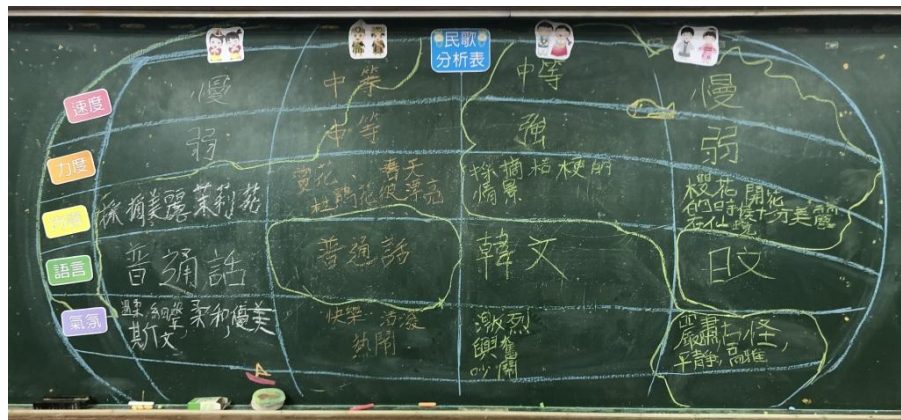 民歌
分析表
速度
慢
中等
中等
慢
力度
弱
中等
強
弱
採摘美麗茉莉花
雪花、春天
杜鵑花很漂亮
採摘桔梗的
情景
櫻花開花
的時候十分美麗
語言
普通話
普通話
韓文
日文
氣氛
溫柔、
斯文,柔和優美
快樂、活潑
熱鬧
激烈
興奮
吵鬧
嚴肅古怪,
平靜,高雅